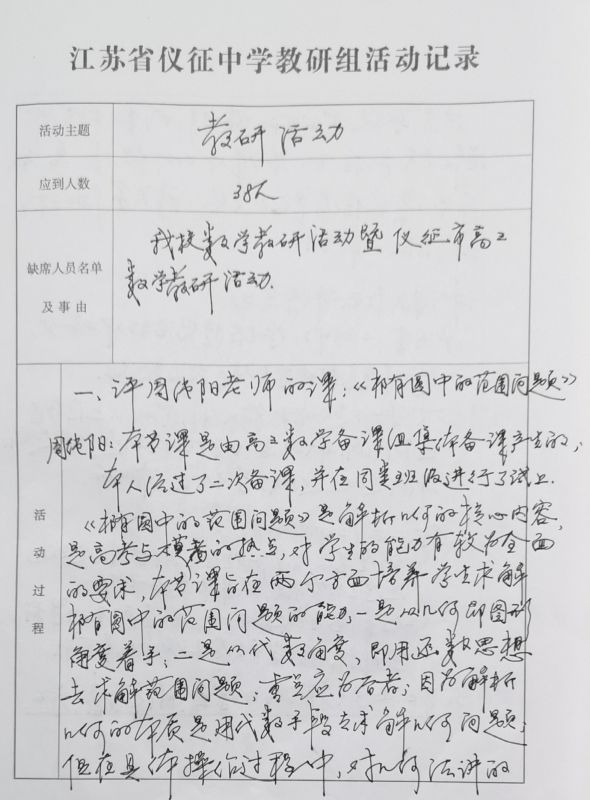 江苏省仪征中学教研组活动记录
活动主题
教研活动
应到人数
38人
缺席人员名单
及事由
我校数学教研活动暨仪征市高三
数学教研活动.
活动过程
一、评周纯阳老师的课:《椭圆中的范围问题》
周纯阳:本节课是由高三数学备课组集体备课产生的,
本人经过了二次备课,并在同类班级进行了试上.
《椭圆中的范围问题》是解析几何的核心内容,
是高考与模考的热点,对学生的能力有较为全面
的要求,本节课旨在两个方面培养学生求解
椭圆中的范围问题的能力,一是从几何即图形
角度着手;二是从代数角度,即用函数思想
去求解范围问题;重点应为后者;因为解析
几何的本质是用代数手段去求解几何问题;
但在具体操作过程中,对几何法讲的